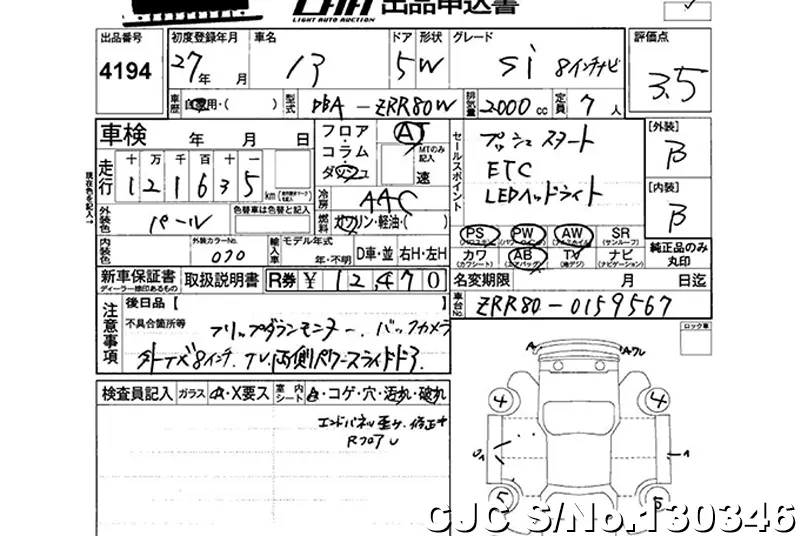 出品申込書
LIGHT AUTO AUCTION
出品番号 初度登録年月 車名 ドア 形状 グレード 評価点
4194 27年 月 5 W Si 8インチナビ 3.5
車歴 自家用・( ) 型式 DBA-ZRR80W 排気量 2000cc 定員 7人
車検 年 月 日 フロア AT
コラム MTのみ記入
ダッシュ 速
セールスポイント プッシュスタート
ETC
LEDヘッドライト
[外装] B
[内装] B
走行 十 万 千 百 十 一
1 2 1 6 3 5 km
現在色を記入→
冷房 AAC
外装色 パール 色替車は色替と記入 燃料 ガソリン・軽油・( )
PS PW AW SR
(サンルーフ)
内装色 外装カラーNo. 070 輸入車 モデル年式 年・不明 D車・並 右H・左H
カワ AB TV ナビ
(カワシート) (エアバッグ) (地デジ) (ナビゲーション)
純正品のみ丸印
新車保証書 取扱説明書 R券 ¥12,470
ディーラー捺印あるもの
名変期限 月 日迄
車台No. ZRR80-0159567
注意事項 後日品【
不具合箇所等 フリップダウンモニター、バックカメラ
ロック車
検査員記入 ガラス A・X要ス 室内シート A・コゲ・穴・汚れ・破れ
エンドパネル歪サ、修正サ
RフロアU
A Aワレ
4 4
U1 1
5 5
CJC S/No.130346